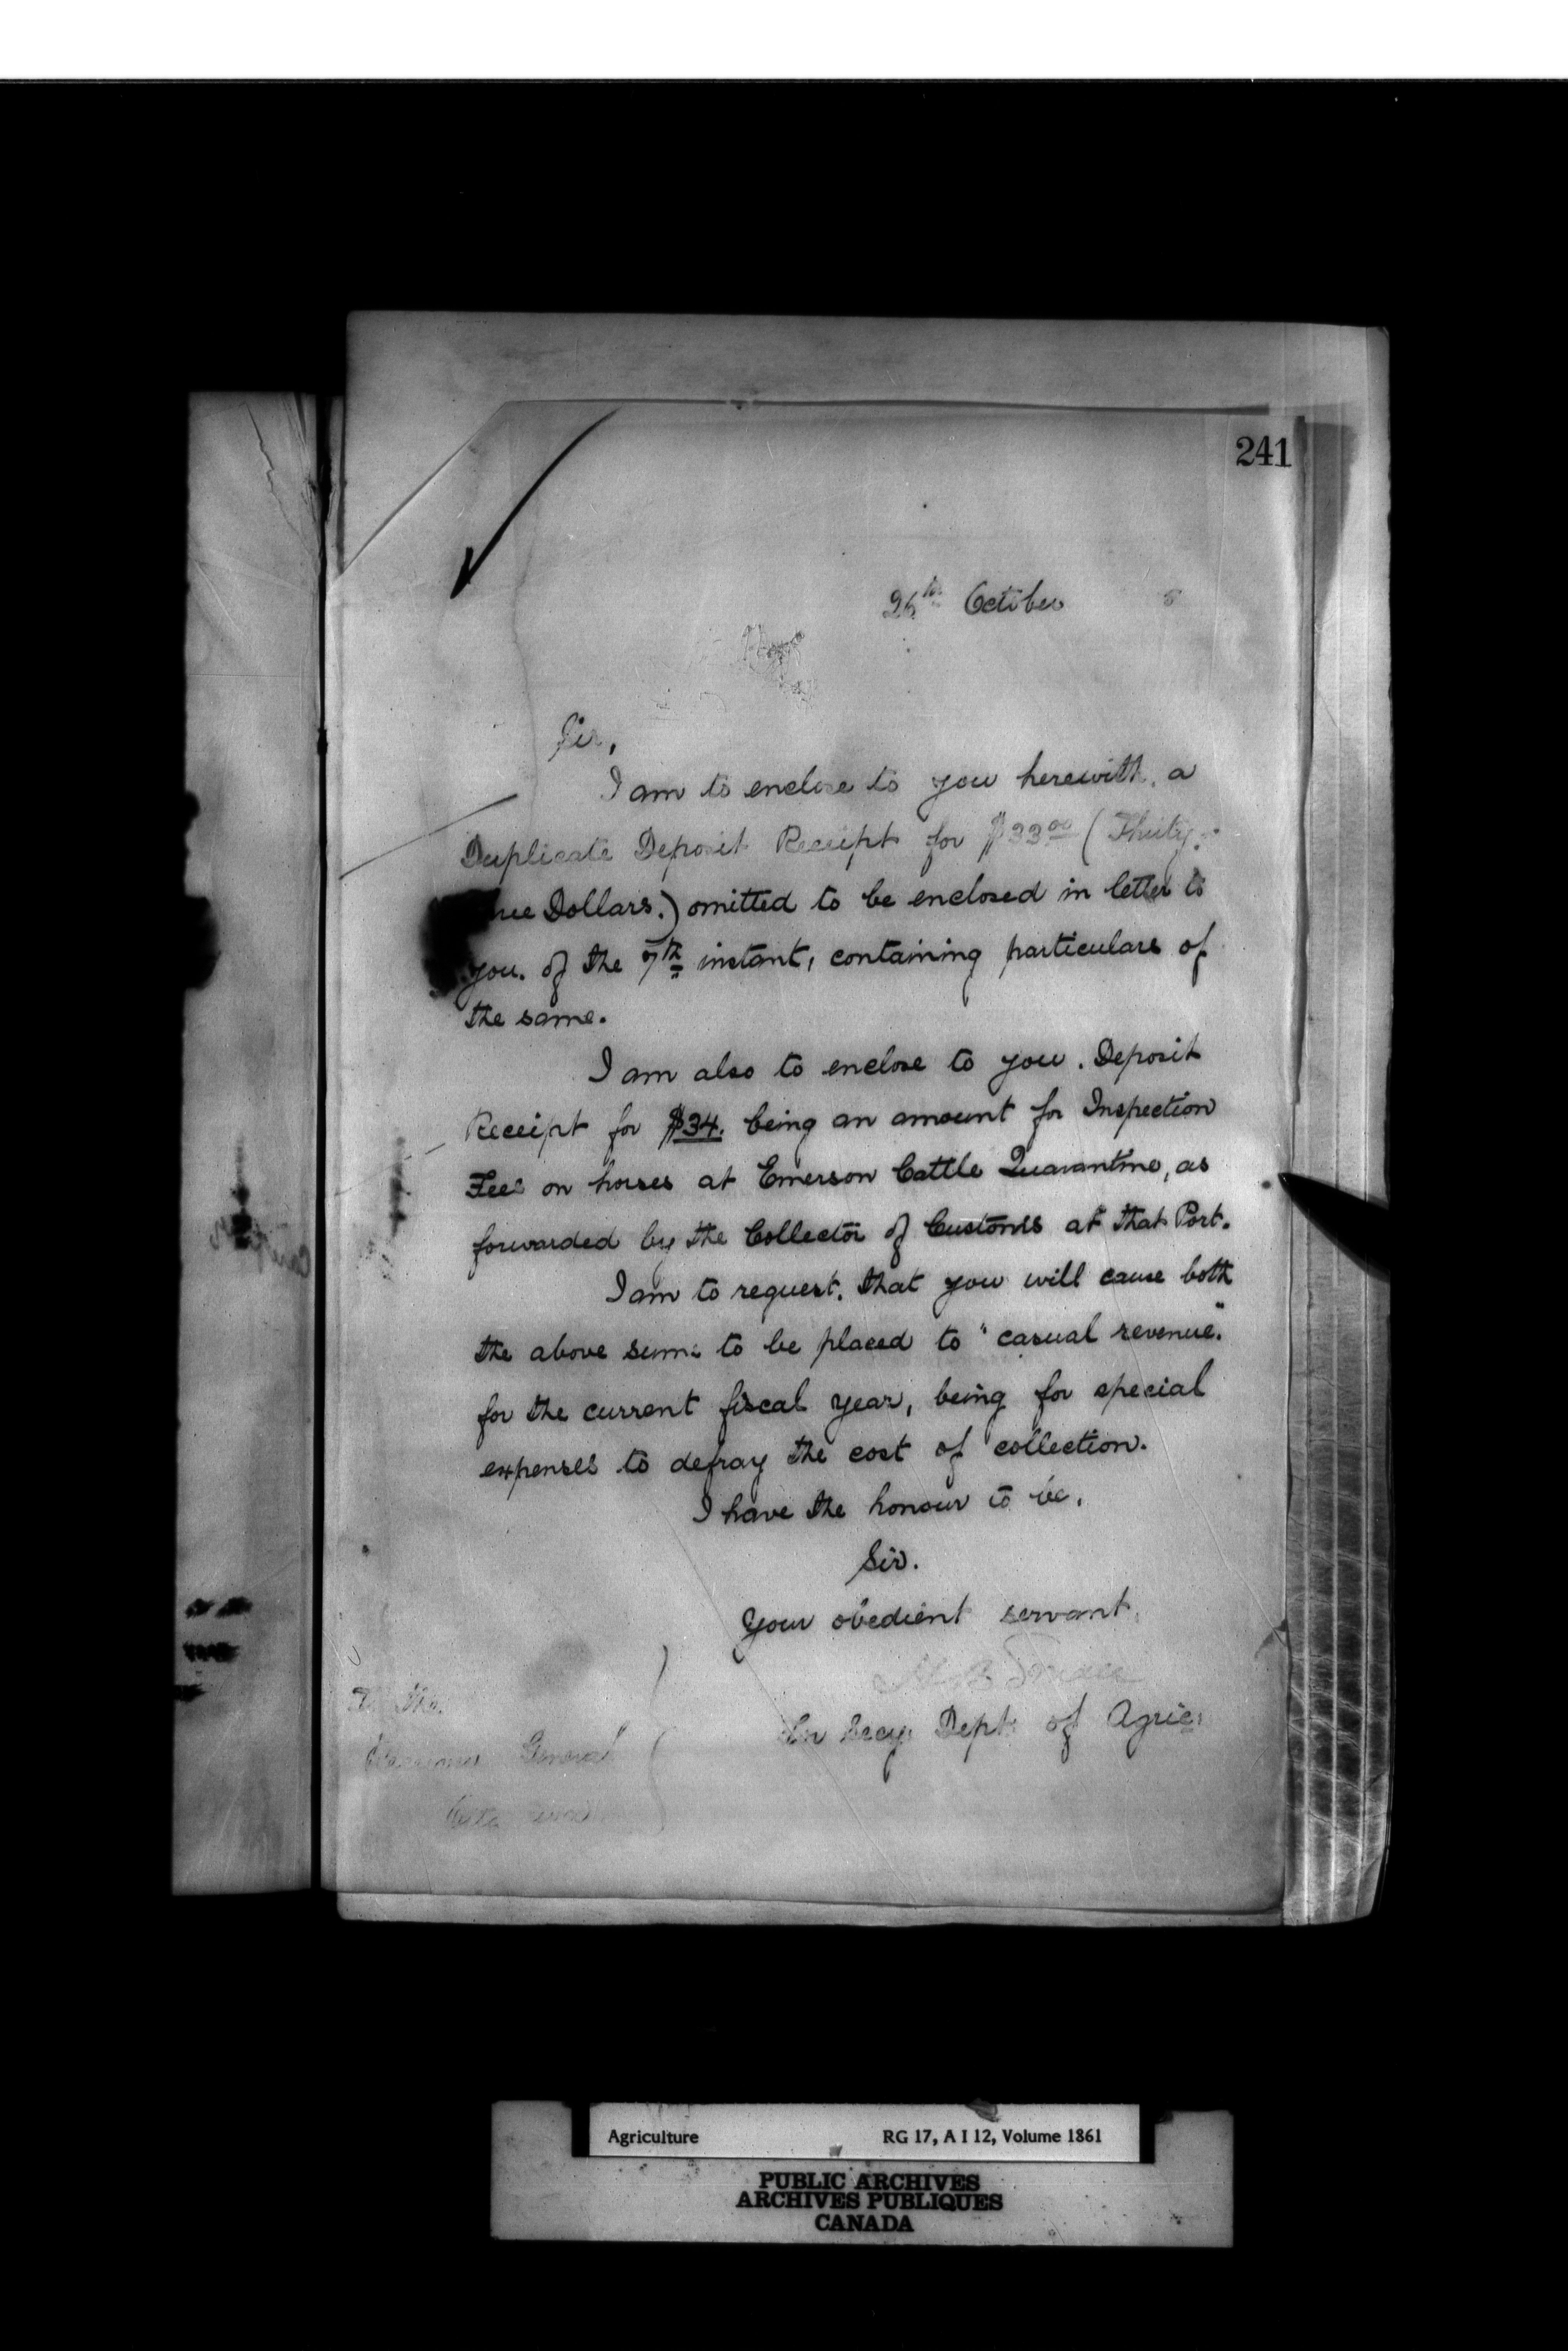 241
26th October 8
Sir,
I am to enclose to you herewith, a
Duplicate Deposit Receipt for $33.00 (Thirty-
Dollars.) omitted to be enclosed in letter to
you. of the 7th instant, containing particulars of
the same.
I am also to enclose to you. Deposit
Receipt for $34. being an amount for Inspection
Fees on horses at Emerson Cattle Quarantine, as
forwarded by the Collector of Customs at that Port.
I am to request. that you will cause both
the above sums to be placed to "casual revenue."
for the current fiscal year, being for special
expenses to defray the cost of collection.
I have the honour to be,
Sir.
Your obedient servant.
Secy. Dept. of Agric.
To the
General
Ottawa
Agriculture RG 17, A I 12, Volume 1861
PUBLIC ARCHIVES
ARCHIVES PUBLIQUES
CANADA